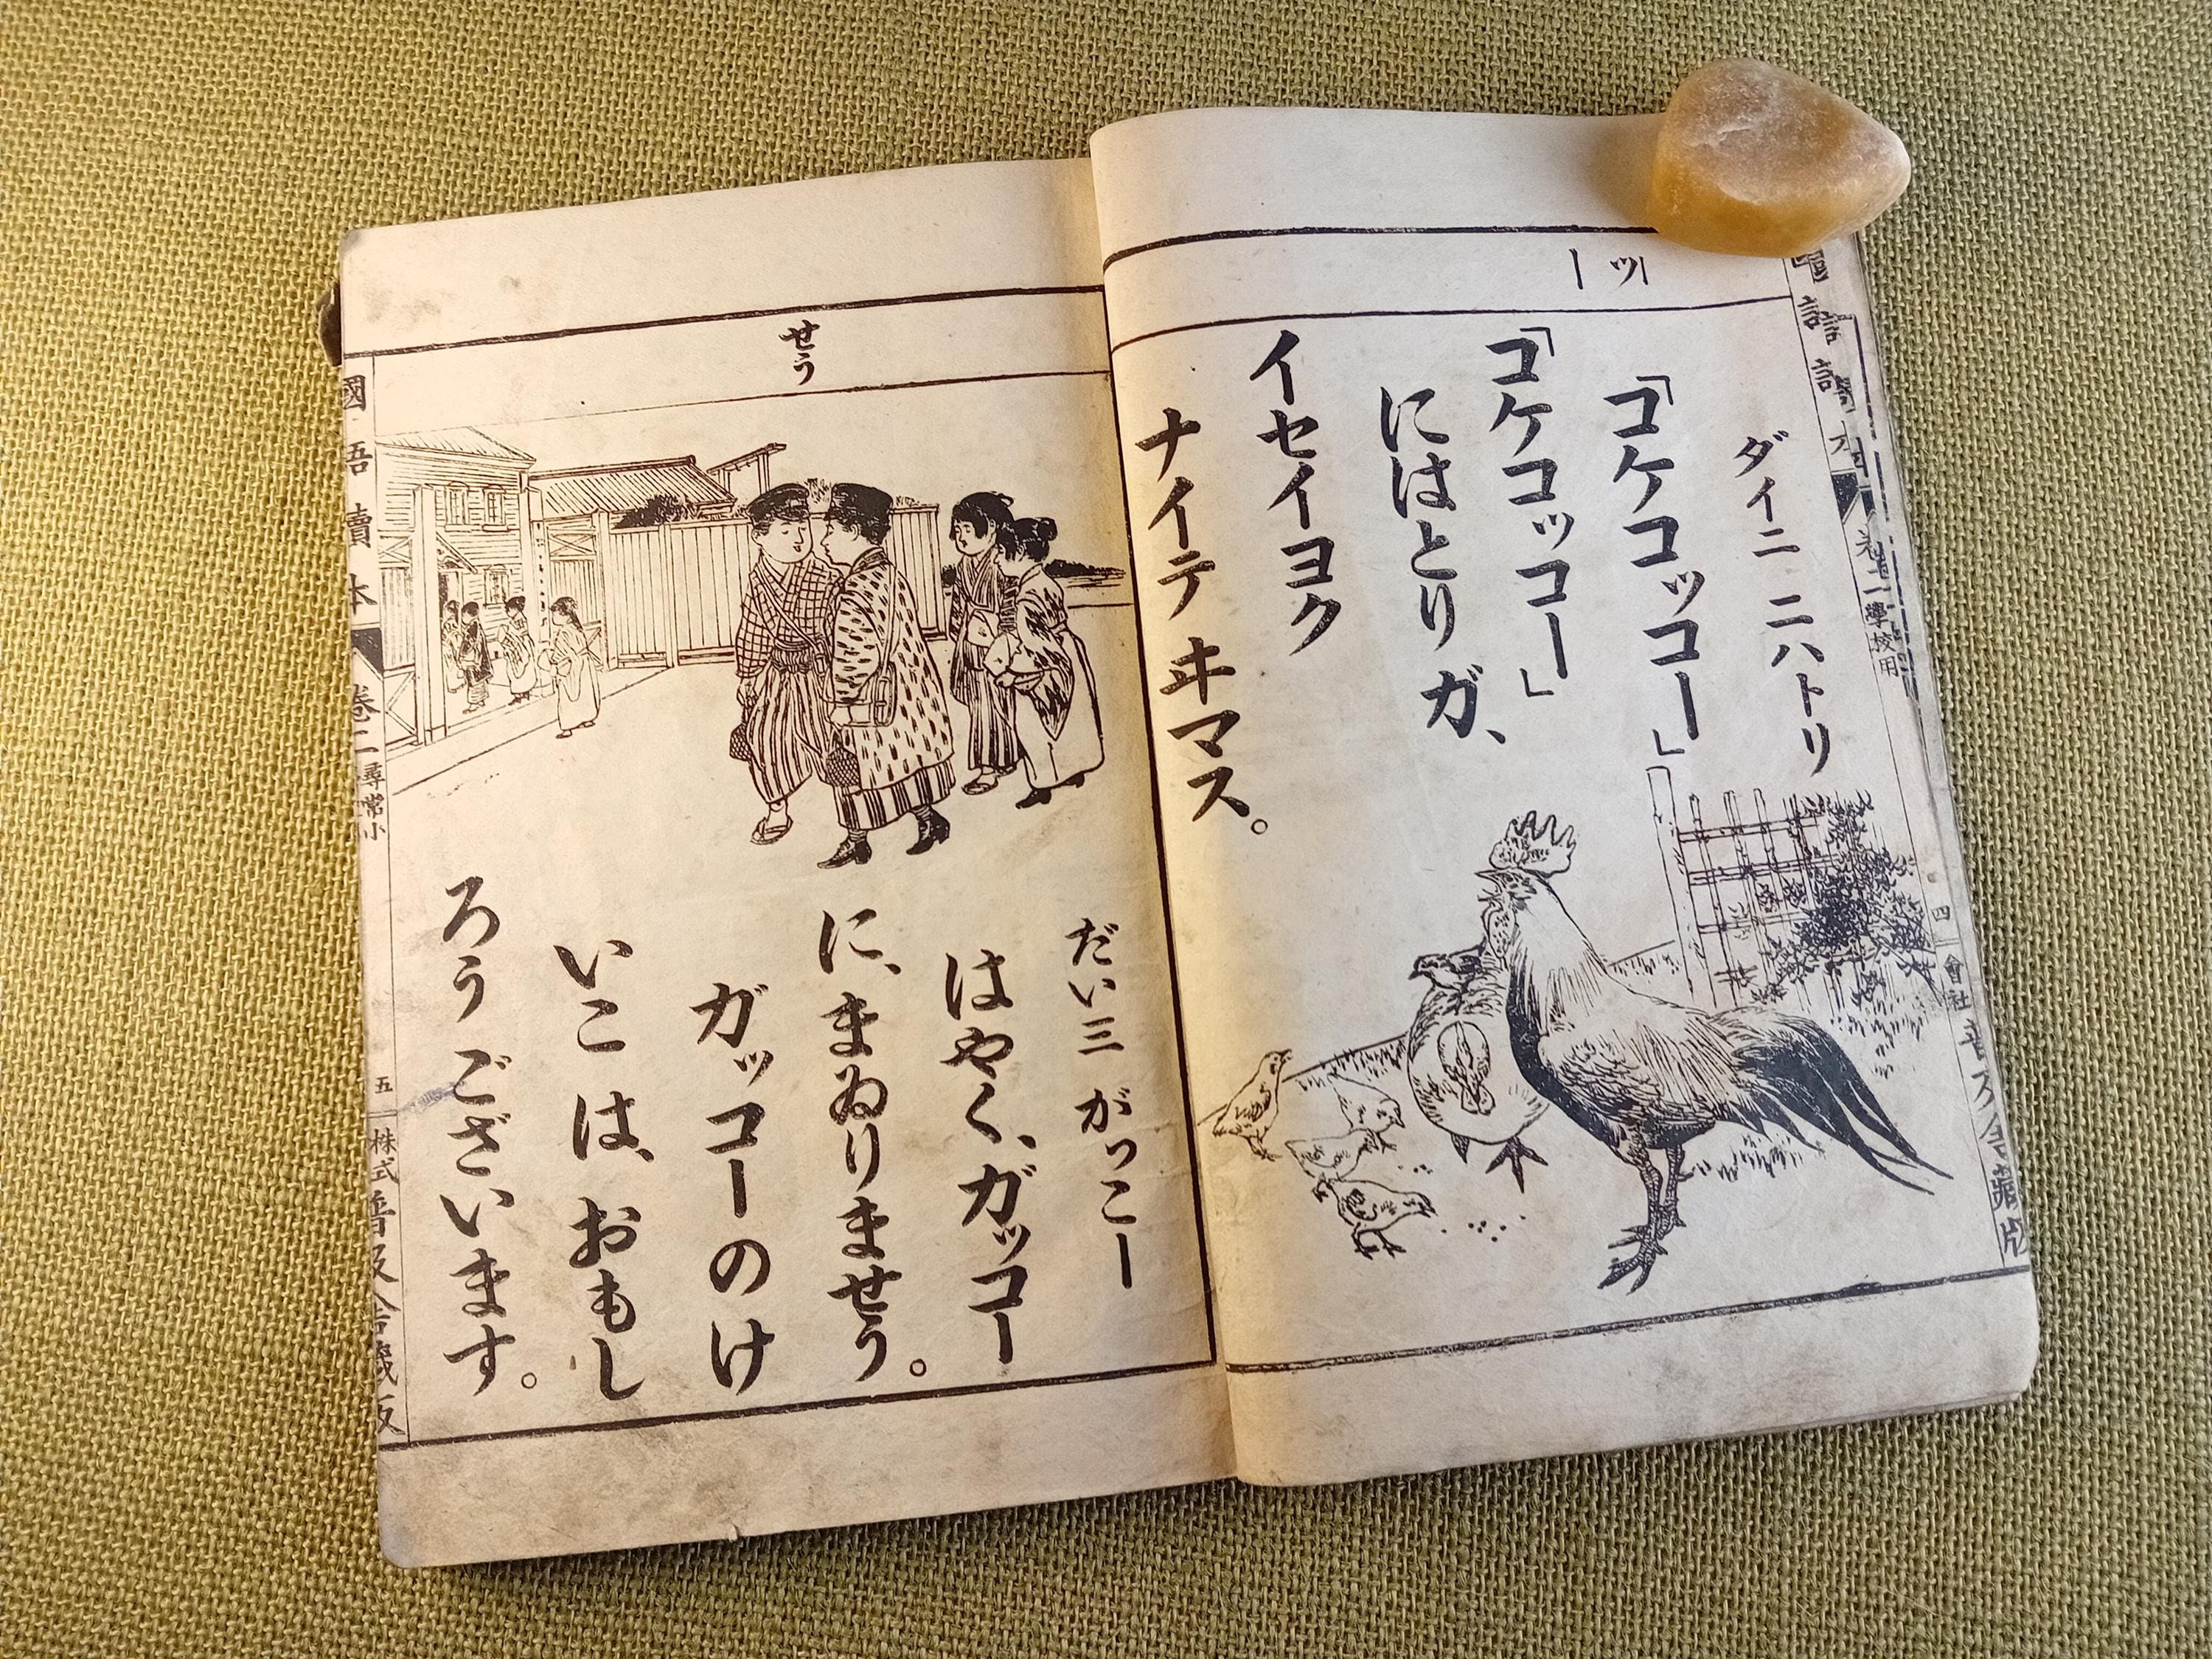 ッー
ダイ二 ニハトリ
「コケコッコー」
「コケコッコー」
にはとり ガ、
イセイヨク
ナイテ ヰマス。
四
會社
せう
だい三 がっこー
はやく、ガッコー
に、まゐりませう。
ガッコーのけ
いこ は、おもし
ろう ございます。
國語讀本
卷二
尋常小
五
株式